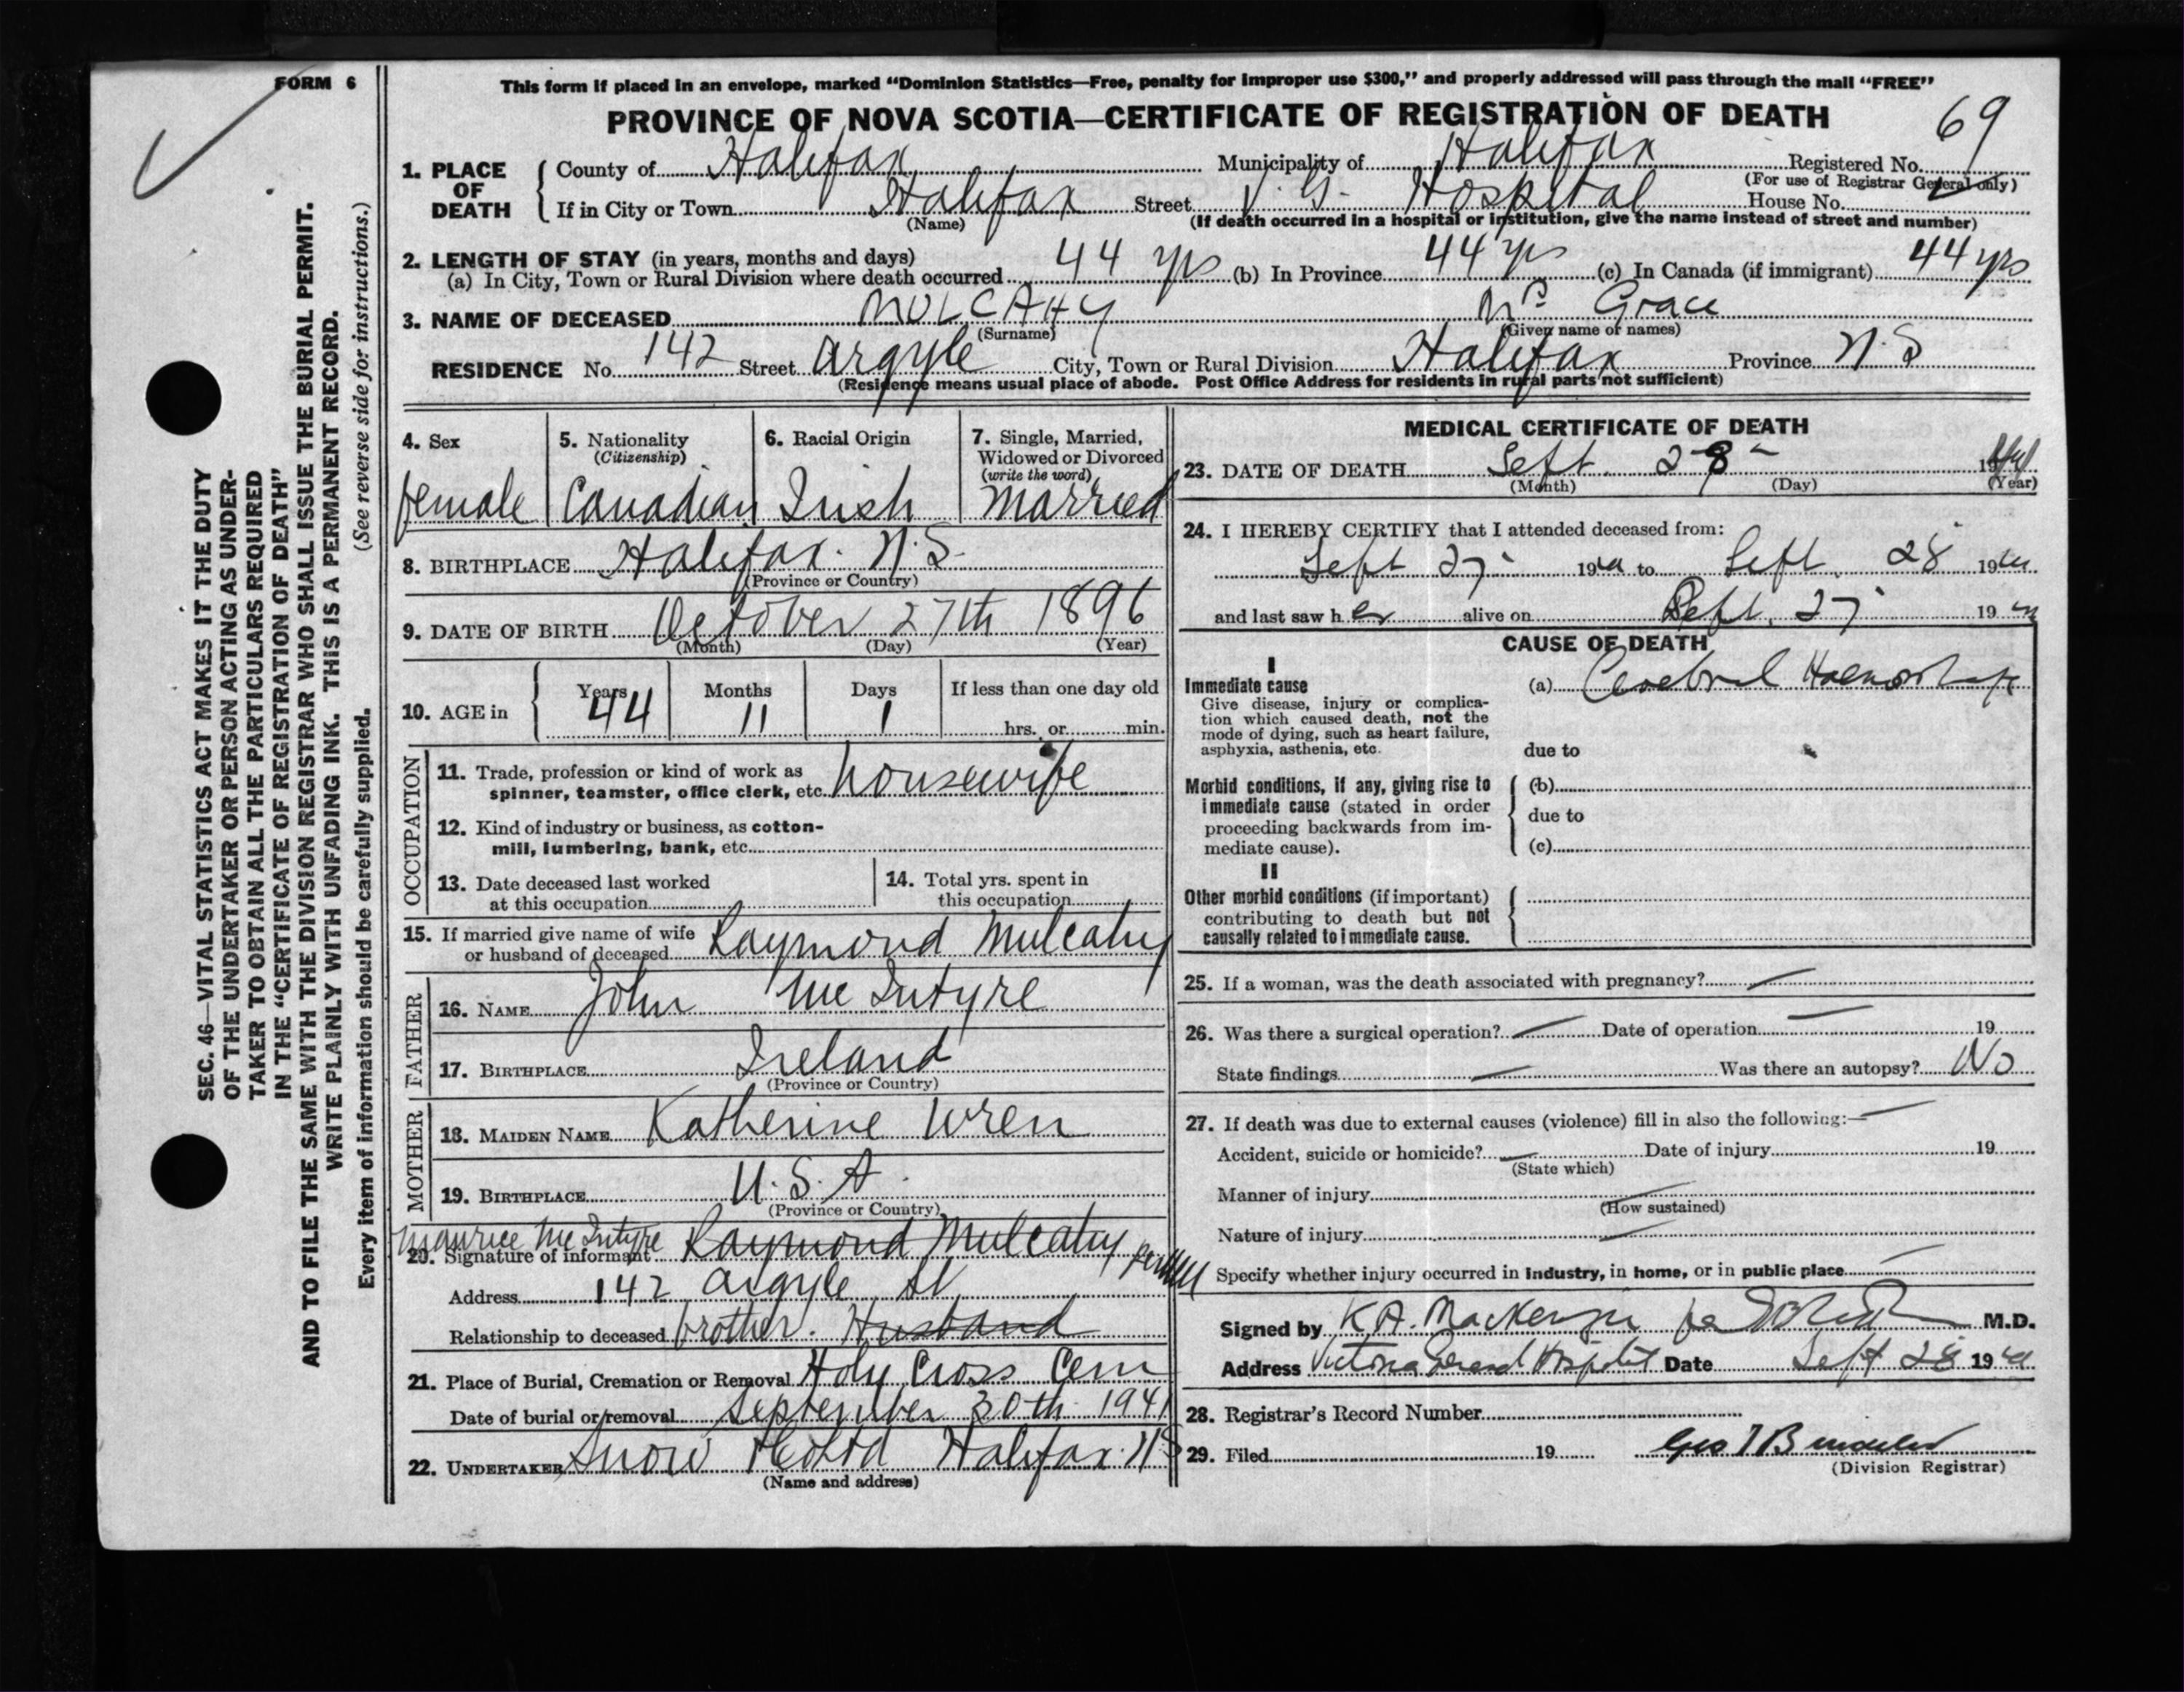 FORM 6
This form if placed in an envelope, marked “Dominion Statistics—Free, penalty for improper use $300,” and properly addressed will pass through the mail “FREE”
PROVINCE OF NOVA SCOTIA—CERTIFICATE OF REGISTRATION OF DEATH
69
1. PLACE OF DEATH
County of Halifax Municipality of Halifax Registered No.
(For use of Registrar General only)
If in City or Town Halifax Street V. G. Hospital House No.
(Name) (If death occurred in a hospital or institution, give the name instead of street and number)
2. LENGTH OF STAY (in years, months and days)
(a) In City, Town or Rural Division where death occurred 44 yrs (b) In Province 44 yrs (c) In Canada (if immigrant) 44 yrs
3. NAME OF DECEASED MULCAHY Mrs Grace
(Surname) (Given name or names)
RESIDENCE No. 142 Street Argyle City, Town or Rural Division Halifax Province N.S
(Residence means usual place of abode. Post Office Address for residents in rural parts not sufficient)
4. Sex
female
5. Nationality
(Citizenship)
Canadian
6. Racial Origin
Irish
7. Single, Married,
Widowed or Divorced
(write the word)
Married
8. BIRTHPLACE Halifax. N.S.
(Province or Country)
9. DATE OF BIRTH October 27th 1896
(Month) (Day) (Year)
10. AGE in
Years Months Days If less than one day old
44 11 1 hrs. or min.
OCCUPATION
11. Trade, profession or kind of work as
spinner, teamster, office clerk, etc. housewife
12. Kind of industry or business, as cotton-
mill, lumbering, bank, etc.
13. Date deceased last worked
at this occupation
14. Total yrs. spent in
this occupation
15. If married give name of wife
or husband of deceased Raymond Mulcahy
FATHER
16. NAME John McIntyre
17. BIRTHPLACE Ireland
(Province or Country)
MOTHER
18. MAIDEN NAME Katherine Wren
19. BIRTHPLACE U.S.A.
(Province or Country)
Maurice McIntyre
20. Signature of informant Raymond Mulcahy
Address 142 Argyle St.
Relationship to deceased brother. Husband
21. Place of Burial, Cremation or Removal Holy Cross Cem
Date of burial or removal September 30th 1941
22. UNDERTAKER Snow & Co Ltd Halifax. N.S
(Name and address)
MEDICAL CERTIFICATE OF DEATH
23. DATE OF DEATH Sept. 28 1941
(Month) (Day) (Year)
24. I HEREBY CERTIFY that I attended deceased from:
Sept 27 1941 to Sept. 28 1941
and last saw her alive on Sept. 27 1941
CAUSE OF DEATH
I
Immediate cause
Give disease, injury or complica-
tion which caused death, not the
mode of dying, such as heart failure,
asphyxia, asthenia, etc.
(a) Cerebral Haemorrhage
due to
Morbid conditions, if any, giving rise to
immediate cause (stated in order
proceeding backwards from im-
mediate cause).
(b)
due to
(c)
II
Other morbid conditions (if important)
contributing to death but not
causally related to immediate cause.
25. If a woman, was the death associated with pregnancy? —
26. Was there a surgical operation? — Date of operation — 19
State findings — Was there an autopsy? No
27. If death was due to external causes (violence) fill in also the following:— —
Accident, suicide or homicide? — Date of injury 19
(State which)
Manner of injury
(How sustained)
Nature of injury —
Specify whether injury occurred in industry, in home, or in public place —
Signed by K.A. MacKenzie per M.D.
Address Victoria General Hospital Date Sept 28 1941
28. Registrar's Record Number
29. Filed 19
(Division Registrar)
SEC. 46—VITAL STATISTICS ACT MAKES IT THE DUTY
OF THE UNDERTAKER OR PERSON ACTING AS UNDER-
TAKER TO OBTAIN ALL THE PARTICULARS REQUIRED
IN THE “CERTIFICATE OF REGISTRATION OF DEATH”
AND TO FILE THE SAME WITH THE DIVISION REGISTRAR WHO SHALL ISSUE THE BURIAL PERMIT.
WRITE PLAINLY WITH UNFADING INK. THIS IS A PERMANENT RECORD.
Every item of information should be carefully supplied. (See reverse side for instructions.)